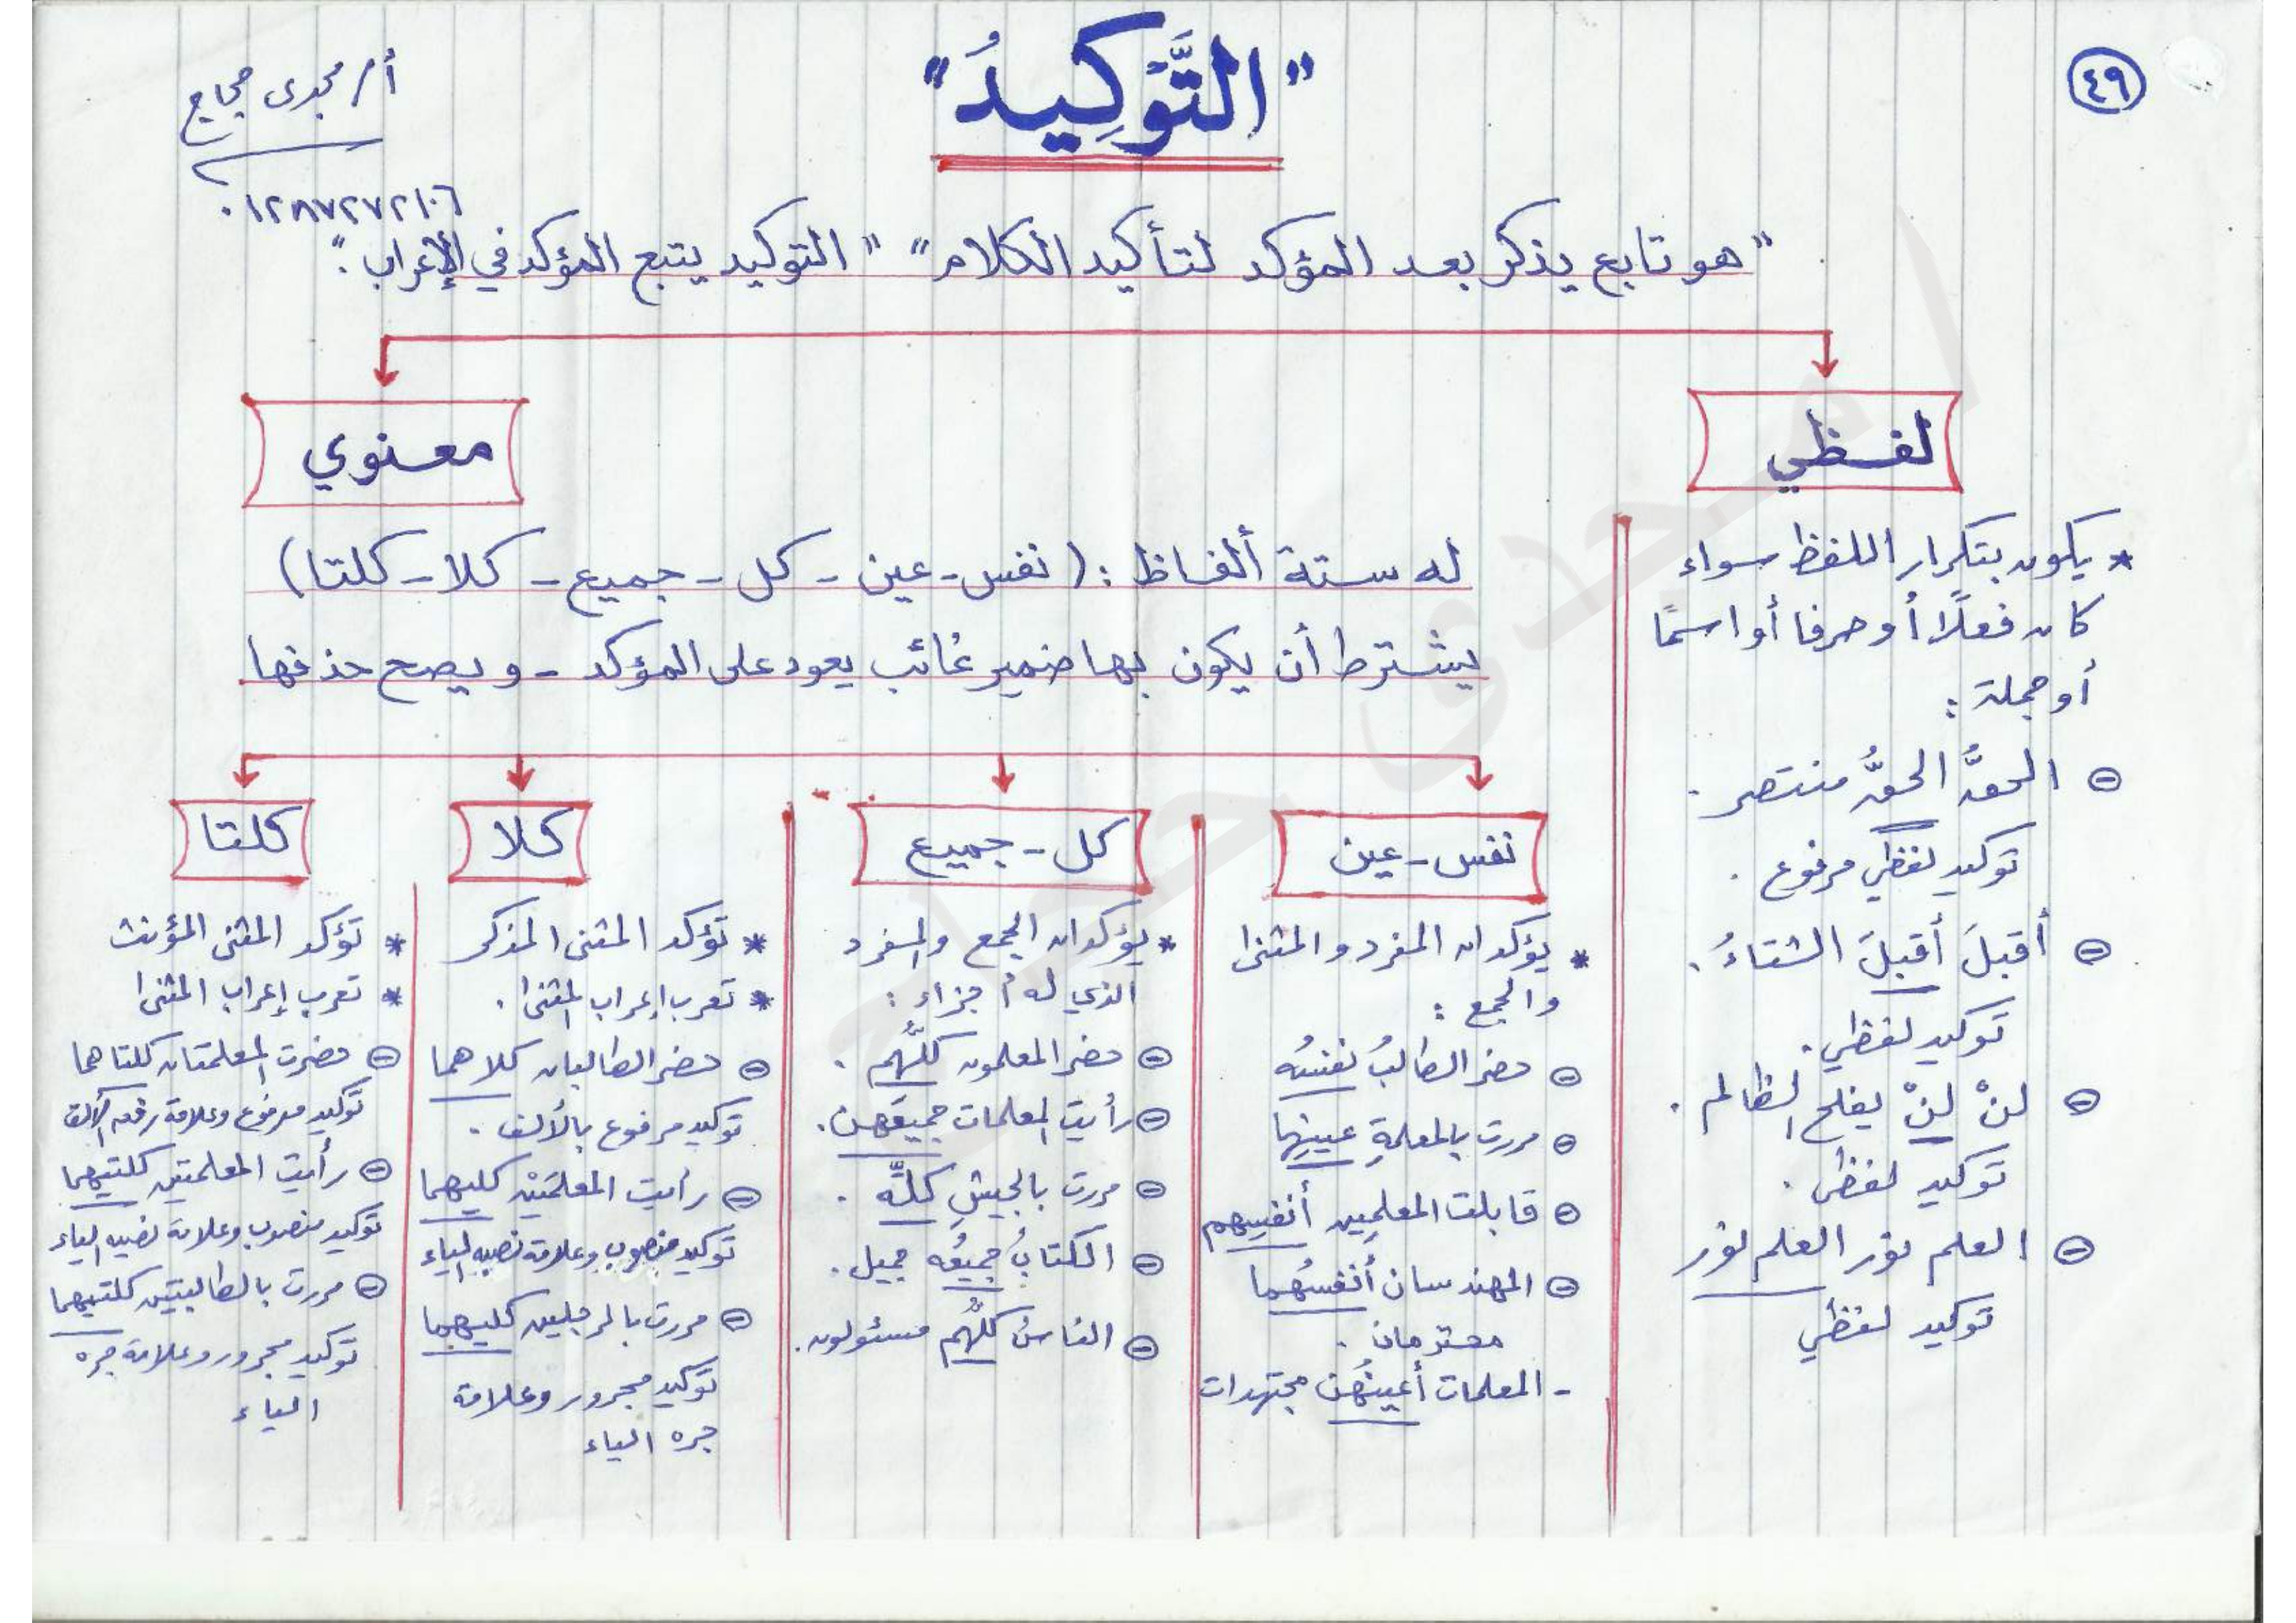 ٤٩
"التَّوْكِيدُ"
أ/ مجدى حجاج
٠١٢٨٧٢٧٢١٠٦
"هو تابع يذكر بعد المؤكد لتأكيد الكلام" "التوكيد يتبع المؤكد في الإعراب."
لفظي
* يكون بتكرار اللفظ سواء
كان فعلًا أو حرفا أو اسمًا
أو جملة :
⊖ الحقُّ الحقُّ منتصر .
توكيد لفظي مرفوع .
⊖ أقبلَ أقبلَ الشتاءُ .
توكيد لفظي .
⊖ لنْ لنْ يفلح الظالم .
توكيد لفظى .
⊖ العلم نور العلم نور
توكيد لفظي
معنوي
له ستة ألفاظ : (نفس - عين - كل - جميع - كلا - كلتا)
يشترط أن يكون بها ضمير غائب يعود على المؤكد - و يصح حذفها
نفس - عين
* يؤكدان المفرد والمثنى
والجمع :
⊖ حضر الطالبُ نفسُه
⊖ مررت بالمعلمةِ عينِها
⊖ قابلت المعلمِين أنفسِهم
⊖ المهندسان أنفسُهما
محترمان .
- المعلمات أعينُهن مجتهدات
كل - جميع
* يؤكدان الجمع والمفرد
الذي له أجزاء :
⊖ حضر المعلمون كلُّهم .
⊖ رأيت المعلمات جميعَهن .
⊖ مررت بالجيشِ كلِّه .
⊖ الكتابُ جميعُه جميل .
⊖ الناسُ كلُّهم مسئولون .
كلا
* تؤكد المثنى المذكر
* تعرب إعراب المثنى .
⊖ حضر الطالبان كلاهما
توكيد مرفوع بالألف .
⊖ رأيت المعلمَيْن كليهما
توكيد منصوب وعلامة نصبه الياء
⊖ مررت بالرجلين كليهما
توكيد مجرور وعلامة
جره الياء
كلتا
* تؤكد المثنى المؤنث
* تعرب إعراب المثنى
⊖ حضرت المعلمتان كلتاهما
توكيد مرفوع وعلامة رفعه الألف
⊖ رأيت المعلمتين كلتيهما
توكيد منصوب وعلامة نصبه الياء
⊖ مررت بالطالبتين كلتيهما
توكيد مجرور وعلامة جره
الياء